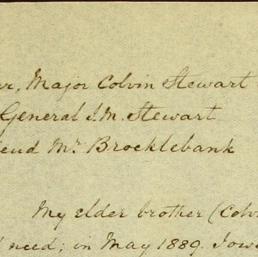 er, Major Colvin Stewart
General J.M. Stewart
iend Mr Brocklebank
My elder brother (Colv
need; in May 1889. I ow